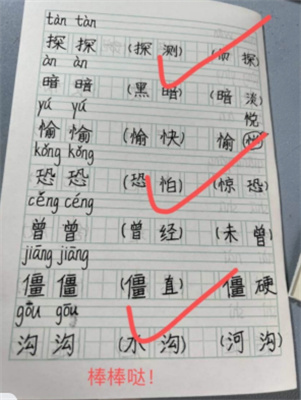 tàn tàn
探 探 (探 测) ( 探)
àn àn
暗 暗 (黑 暗) (暗 淡)
yú yú 悦
愉 愉 (愉 快) 愉
kǒng kǒng
恐 恐 (恐 怕) (惊 恐)
céng céng
曾 曾 (曾 经) (未 曾)
jiāng jiāng
僵 僵 (僵 直) 僵 硬
gōu gōu
沟 沟 (水 沟) (河 沟)
棒棒哒!